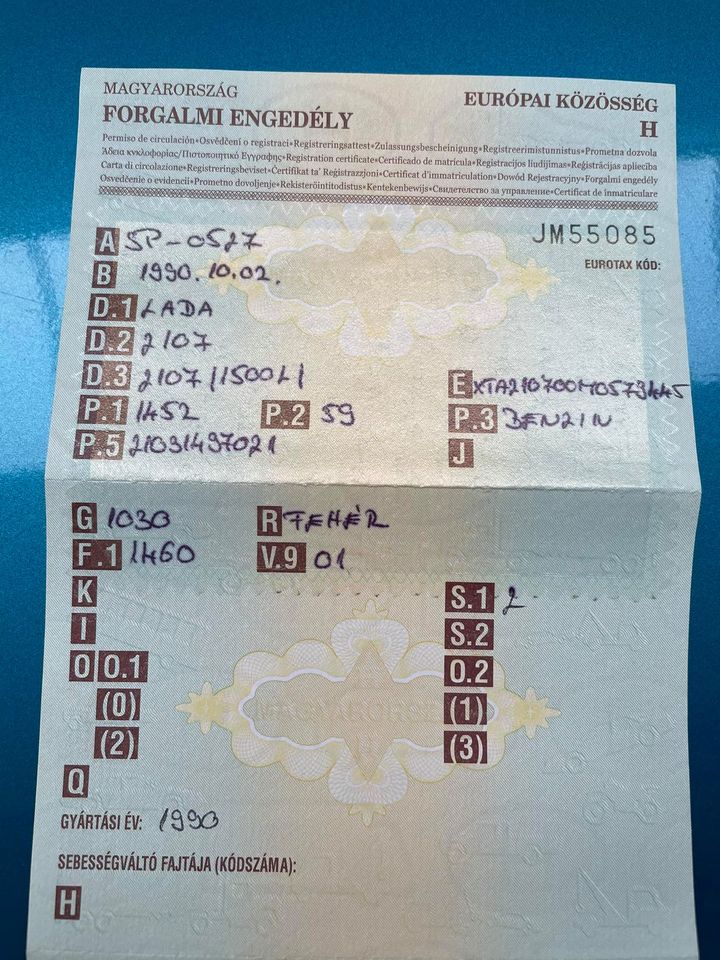 MAGYARORSZÁG
EURÓPAI KÖZÖSSÉG
FORGALMI ENGEDÉLY
H
Permiso de circulación•Osvědčení o registraci•Registreringsattest•Zulassungsbescheinigung•Registreerimistunnistus•Prometna dozvola
Άδεια κυκλοφορίας/Πιστοποιητικό Εγγραφης•Registration certificate•Certificado de matrícula•Registracijos liudijimas•Reģistrācijas apliecība
Carta di circolazione•Registreringsbeviset•Ċertifikat ta' Reġistrazzjoni•Certificat d'immatriculation•Dowód Rejestracyjny•Forgalmi engedély
Osvedčenie o evidencii•Prometno dovoljenje•Rekisteröintitodistus•Kentekenbewijs•Свидетелство за управление•Certificat de înmatriculare
A SP-0527
JM55085
B 1990.10.02.
EUROTAX KÓD:
D.1 LADA
D.2 2107
D.3 2107/1500L/
E
P.1 1452 P.2 59 P.3 BENZIN
P.5 21031497021
J
G 1030 R FEHÉR
F.1 1460 V.9 01
K S.1 2
I S.2
O O.1 O.2
(0) (1)
(2) (3)
Q
GYÁRTÁSI ÉV: 1990
SEBESSÉGVÁLTÓ FAJTÁJA (KÓDSZÁMA):
H